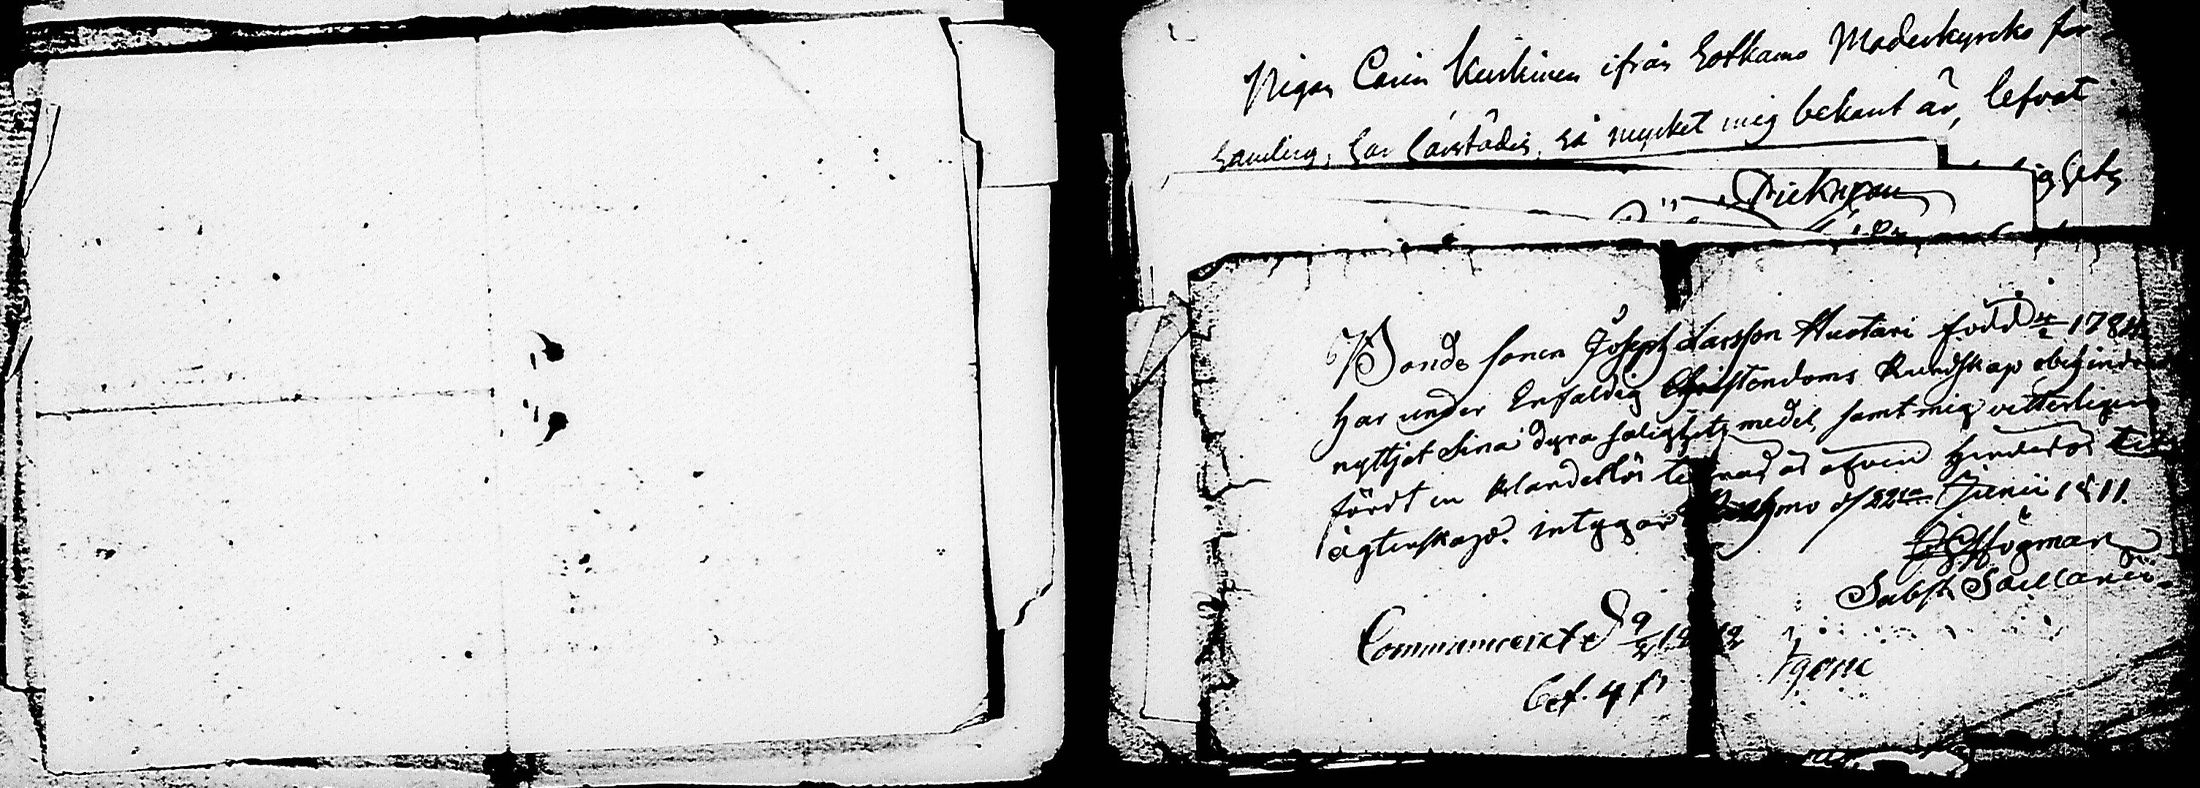 Pigan Carin Kurkinen ifrån Sotkamo Moderkyrcko för-
samling, har lärstådes, så mycket mig bekant är, lefvat
Dickman
Bonde sonen Joseph Larsson Huotari född 17
har under Enfaldig Christendoms Kundskap obehindrad
nyttjat Sina dyra salighets medel, samt mig vitterligen
fördt en Klanderlös lefnad är äfven hinderlös til
ägtenskap. intygar Kuhmo d/ 22dra Junii 1811.
Högman
Sabst Sacellanii
Communicerat d 9/ 1812